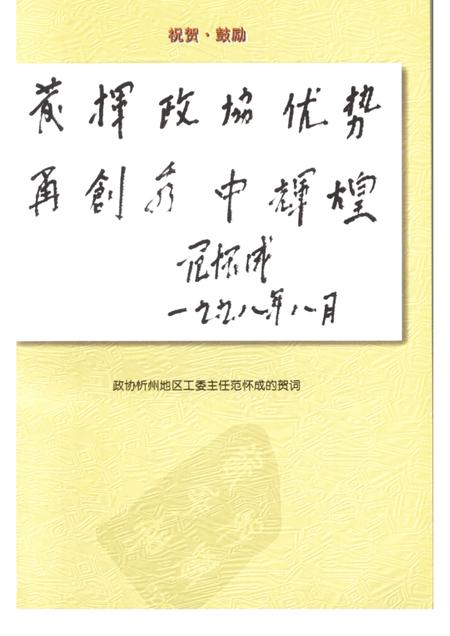 祝贺·鼓励
发挥政協优势
再創秀中輝煌
范怀成
一九九八年八月
政协忻州地区工委主任范怀成的贺词